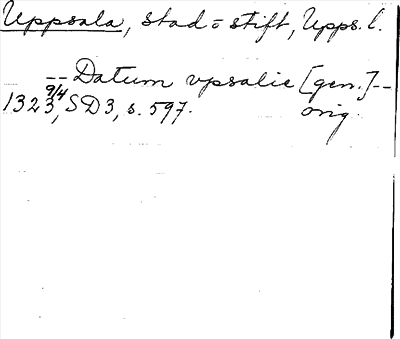 Uppsala, stad = stift, Upps. l.
-- Datum vpsalie [gen.] --
1323 9/4, SD3, s. 597. orig.